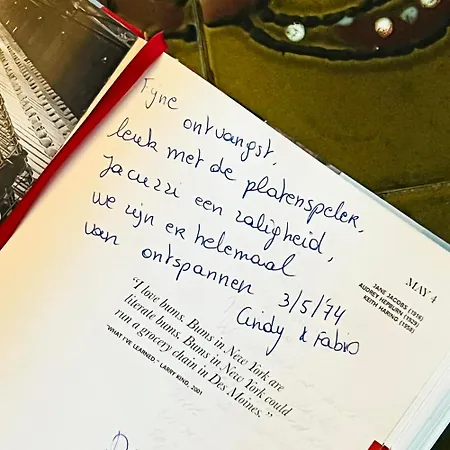 Fyne ontvangst,
leuk met de platenspeler,
Jacuzzi een zaligheid,
we zijn er helemaal
van ontspannen 3/5/'74
Cindy & Fabio
MAY 4
JANE JACOBS (1916)
AUDREY HEPBURN (1929)
KEITH HARING (1958)
"I love bums. Bums in New York are
literate bums. Bums in New York could
run a grocery chain in Des Moines."
"WHAT I'VE LEARNED"—LARRY KING, 2001